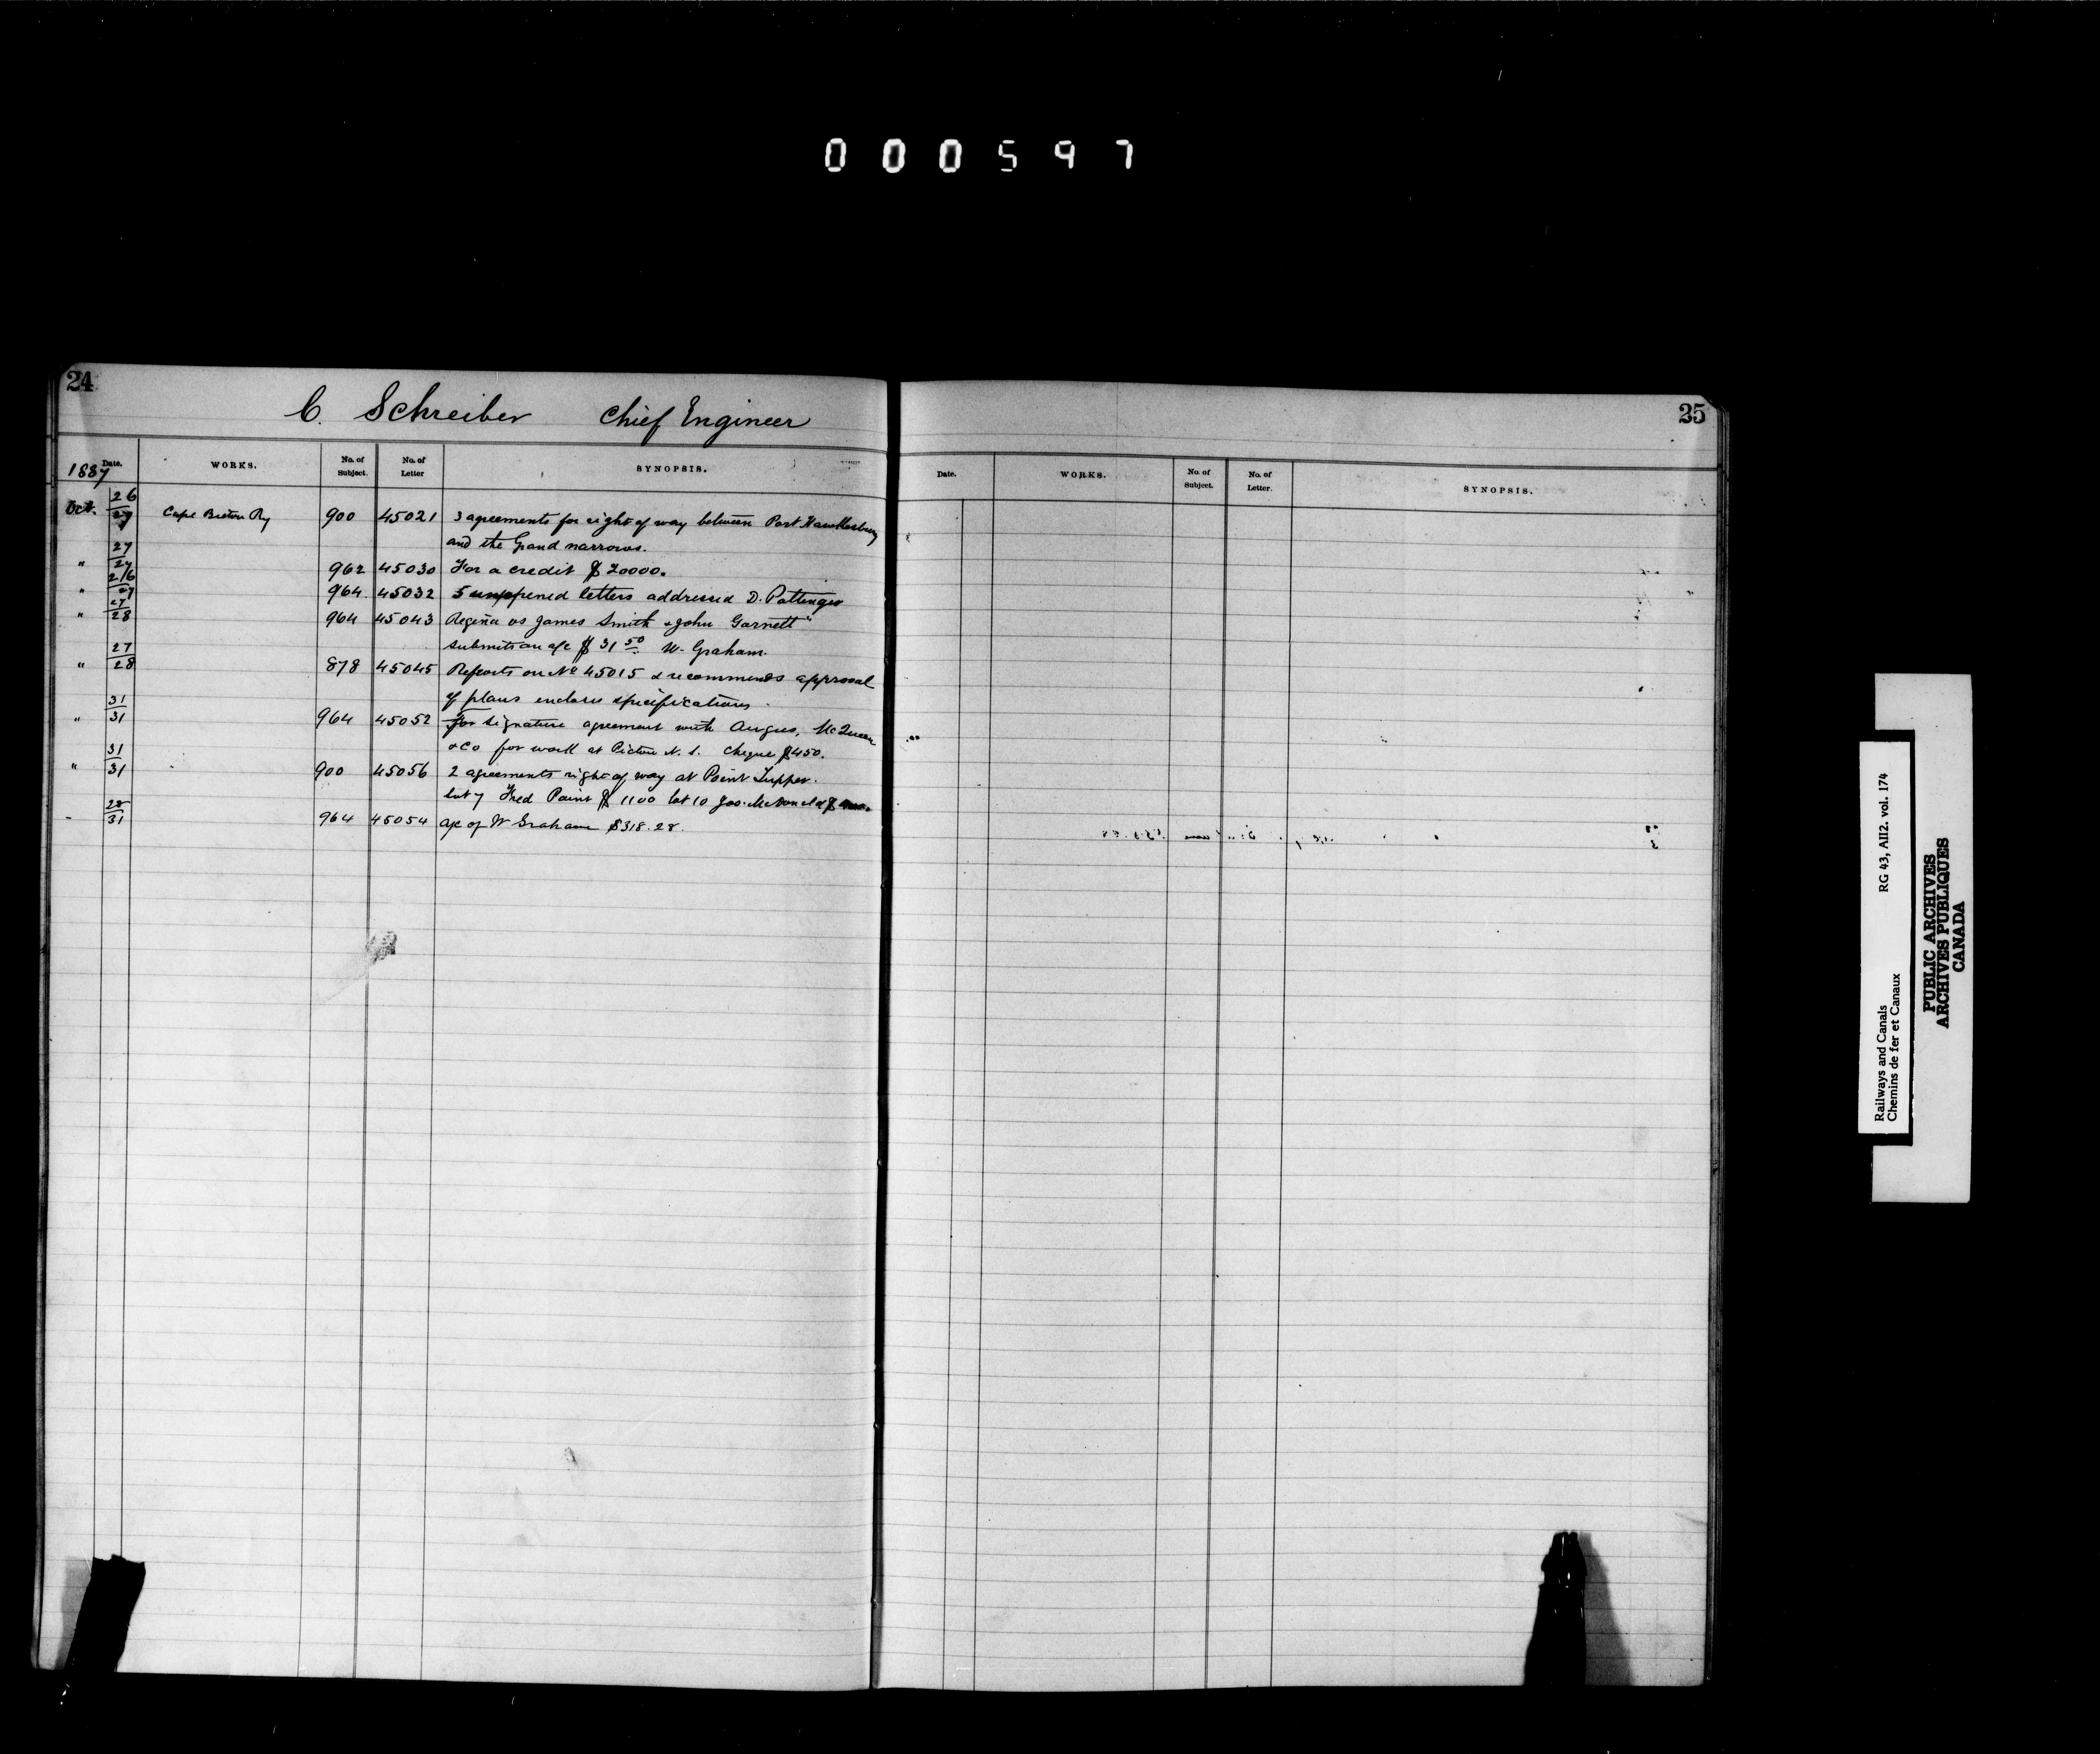 000597
24
C. Schreiber Chief Engineer
1887 Date. WORKS. No. of Subject. No. of Letter SYNOPSIS.
Oct. 26/27 Cape Breton Ry 900 45021 3 agreements for right of way between Port Hawkesbury
and the Grand narrows.
" 27/27 962 45030 For a credit $20000.
" 26/27 964. 45032 5 unopened letters addressed D. Pottinger
" 27/28 964 45043 Regina vs James Smith & John Garnett"
submits an a/c $31 50 W. Graham.
" 27/28 878 45045 Reports on No 45015 & recommends approval
of plans encloses specifications.
" 31/31 964 45052 For signature agreement with Angus, McQueen
& Co for work at Pictou N. S. Cheque $450.
" 31/31 900 45056 2 agreements right of way at Point Tupper.
lot 7 Fred Paint $1100 lot 10 Jos. McDonald $
" 28/31 964 45054 a/c of W Graham $318.28.
25
Date. WORKS. No. of Subject. No. of Letter. SYNOPSIS.
Railways and Canals RG 43, AII2. vol. 174
Chemins de fer et Canaux
PUBLIC ARCHIVES
ARCHIVES PUBLIQUES
CANADA